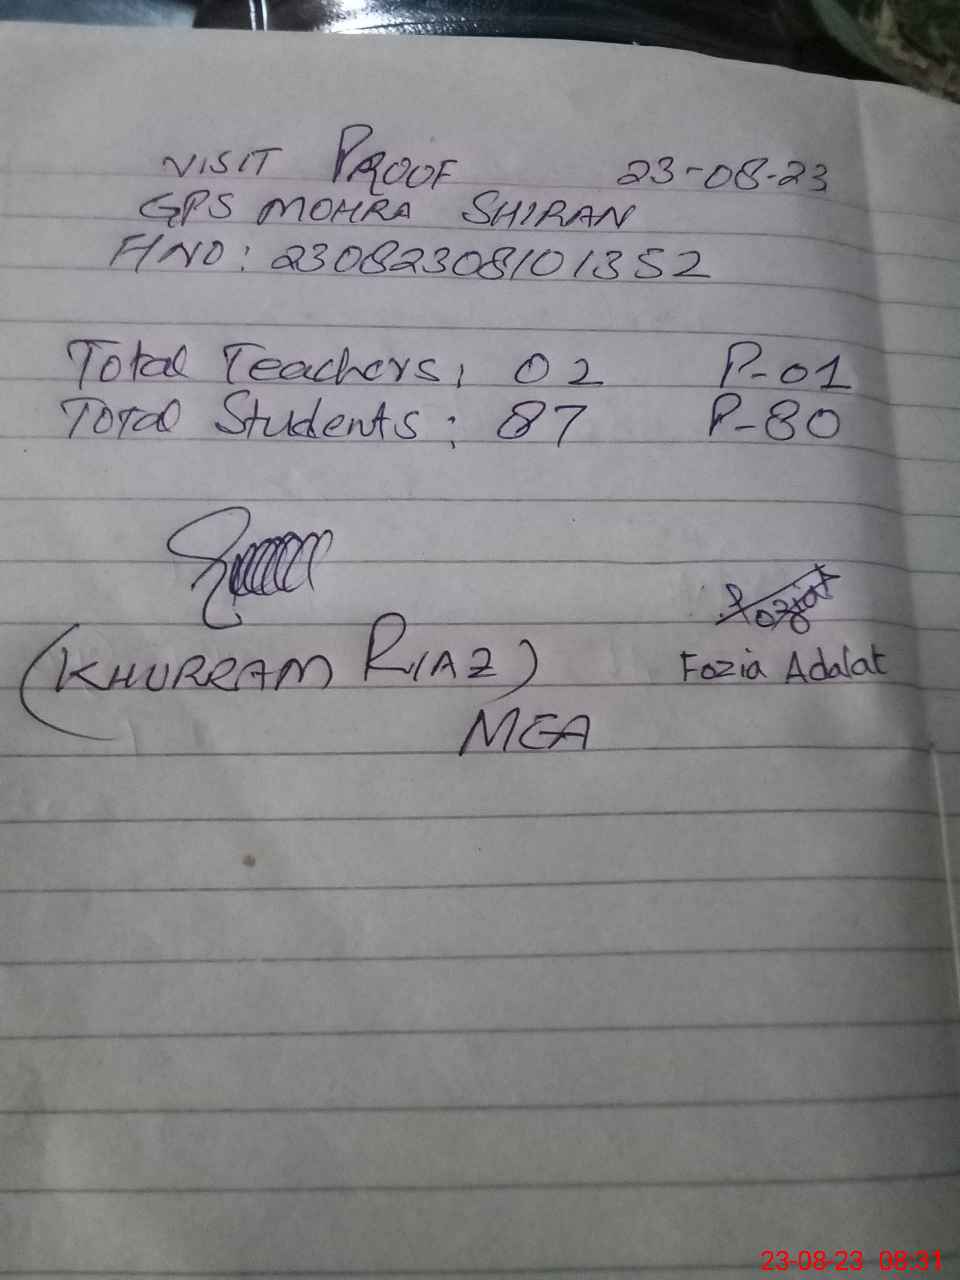 VISIT PROOF 23-08-23
GPS MOHRA SHIRAN
F/NO: 23082308101352
Total Teachers: 02 P-01
Total Students: 87 P-80
Fozia
(KHURRAM RIAZ) Fozia Adalat
MEA
23-08-23 08:31